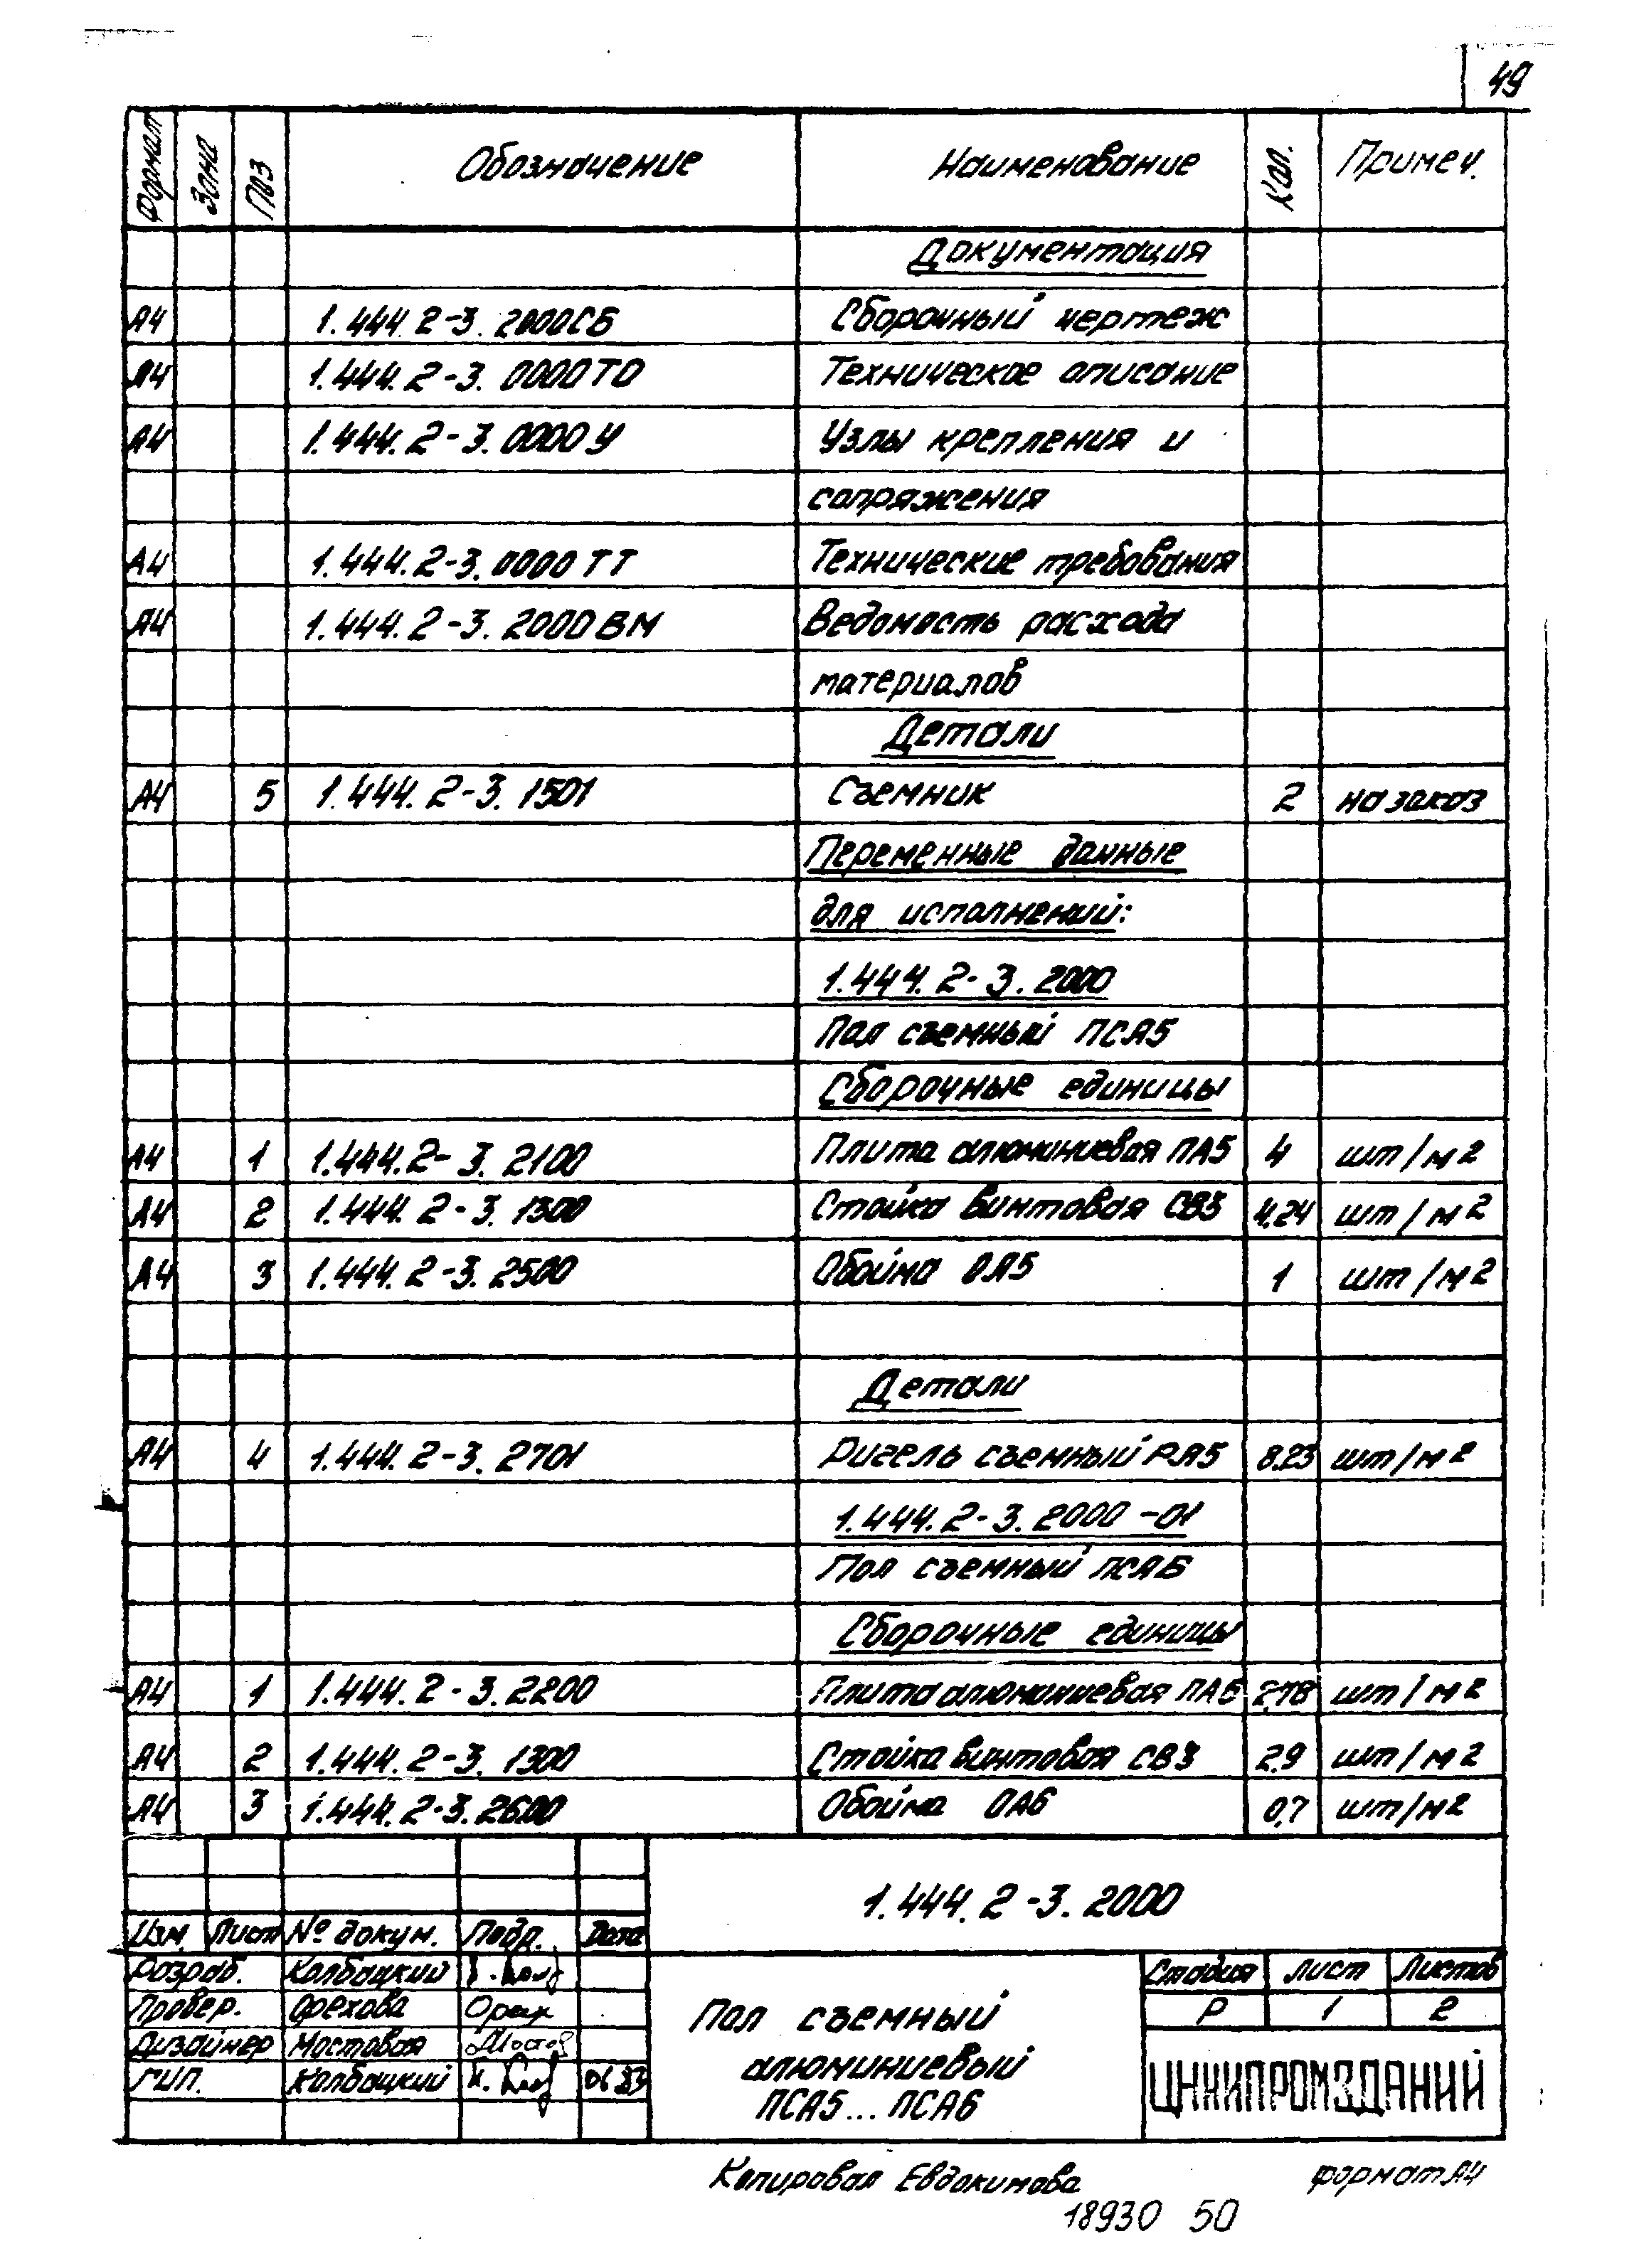 49
Формат Зона Поз Обозначение Наименование Кол. Примеч.
Документация
А4 1.444.2-3.2000СБ Сборочный чертеж
А4 1.444.2-3.0000ТО Техническое описание
А4 1.444.2-3.0000У Узлы крепления и
сопряжения
А4 1.444.2-3.0000ТТ Технические требования
А4 1.444.2-3.2000ВМ Ведомость расхода
материалов
Детали
А4 5 1.444.2-3.1501 Съемник 2 на заказ
Переменные данные
для исполнений:
1.444.2-3.2000
Пол съемный ПСА5
Сборочные единицы
А4 1 1.444.2-3.2100 Плита алюминиевая ПА5 4 шт/м2
А4 2 1.444.2-3.1300 Стойка винтовая СВ3 4.24 шт/м2
А4 3 1.444.2-3.2500 Обойма ОА5 1 шт/м2
Детали
А4 4 1.444.2-3.2701 Ригель съемный РА5 8.23 шт/м2
1.444.2-3.2000-01
Пол съемный ПСА6
Сборочные единицы
А4 1 1.444.2-3.2200 Плита алюминиевая ПА6 2,78 шт/м2
А4 2 1.444.2-3.1300 Стойка винтовая СВ3 2.9 шт/м2
А4 3 1.444.2-3.2600 Обойма ОА6 0,7 шт/м2
1.444.2-3.2000
Изм. Лист № докум. Подр. Дата
Разраб. Колбацкий
Провер. Орехова Орех
Дизайнер Мостовая
ГИП. Колбацкий 06.83
Пол съемный
алюминиевый
ПСА5...ПСА6
Стадия Лист Листов
Р 1 2
ЦНИИПРОМЗДАНИЙ
Копировал Евдокимова формат А4
18930 50